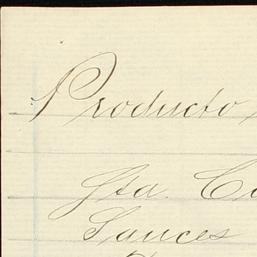 Producto
Hda. Ca
Sauces